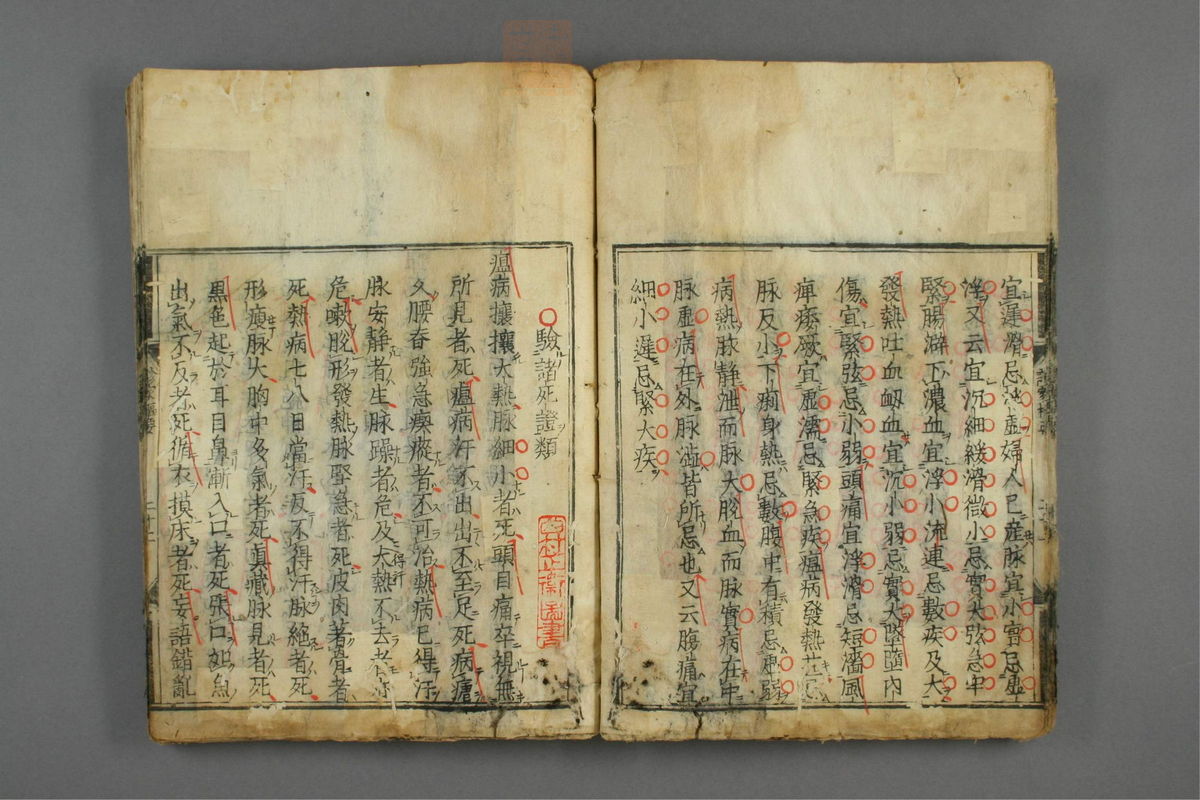 宜遲滑忌浮虛婦人已産脉宜小實忌虛
浮又云宜沉細緩滑微小忌實大弦急牢
緊腸澼下濃血宜浮小流連忌數疾及大
發熱吐血衂血宜沉小弱忌實大堅頭內
傷宜緊弦忌小弱頭痛宜浮滑忌短濇風
痺痿厥宜虛濡忌緊急疾瘟病發熱
脉反小下痢身熱忌數腹中有積忌虛弱
病熱脉静泄而脉大脫血而脉實病在中
脉虛病在外脉澁皆所忌也又云腸痛宜
細小遲忌緊大疾
○驗諸死證類
瘟病攘攘大熱脉細小者死頭目痛卒視無
所見者死瘟病汗不出出不至足死病瘧
久腰脊強急瘈瘲者不可治熱病已得汗
脉安静者生脉躁者危及大熱不去者
危嗽脫形發熱脉堅急者死皮肉著骨者
死熱病七八日當汗反不得汗脉絶者死
形瘦脉大胸中多氣者死真臓脉見者死
黒色起於耳目鼻漸入口者死張口如魚
出氣不反者死循衣摸床者死妄語錯亂